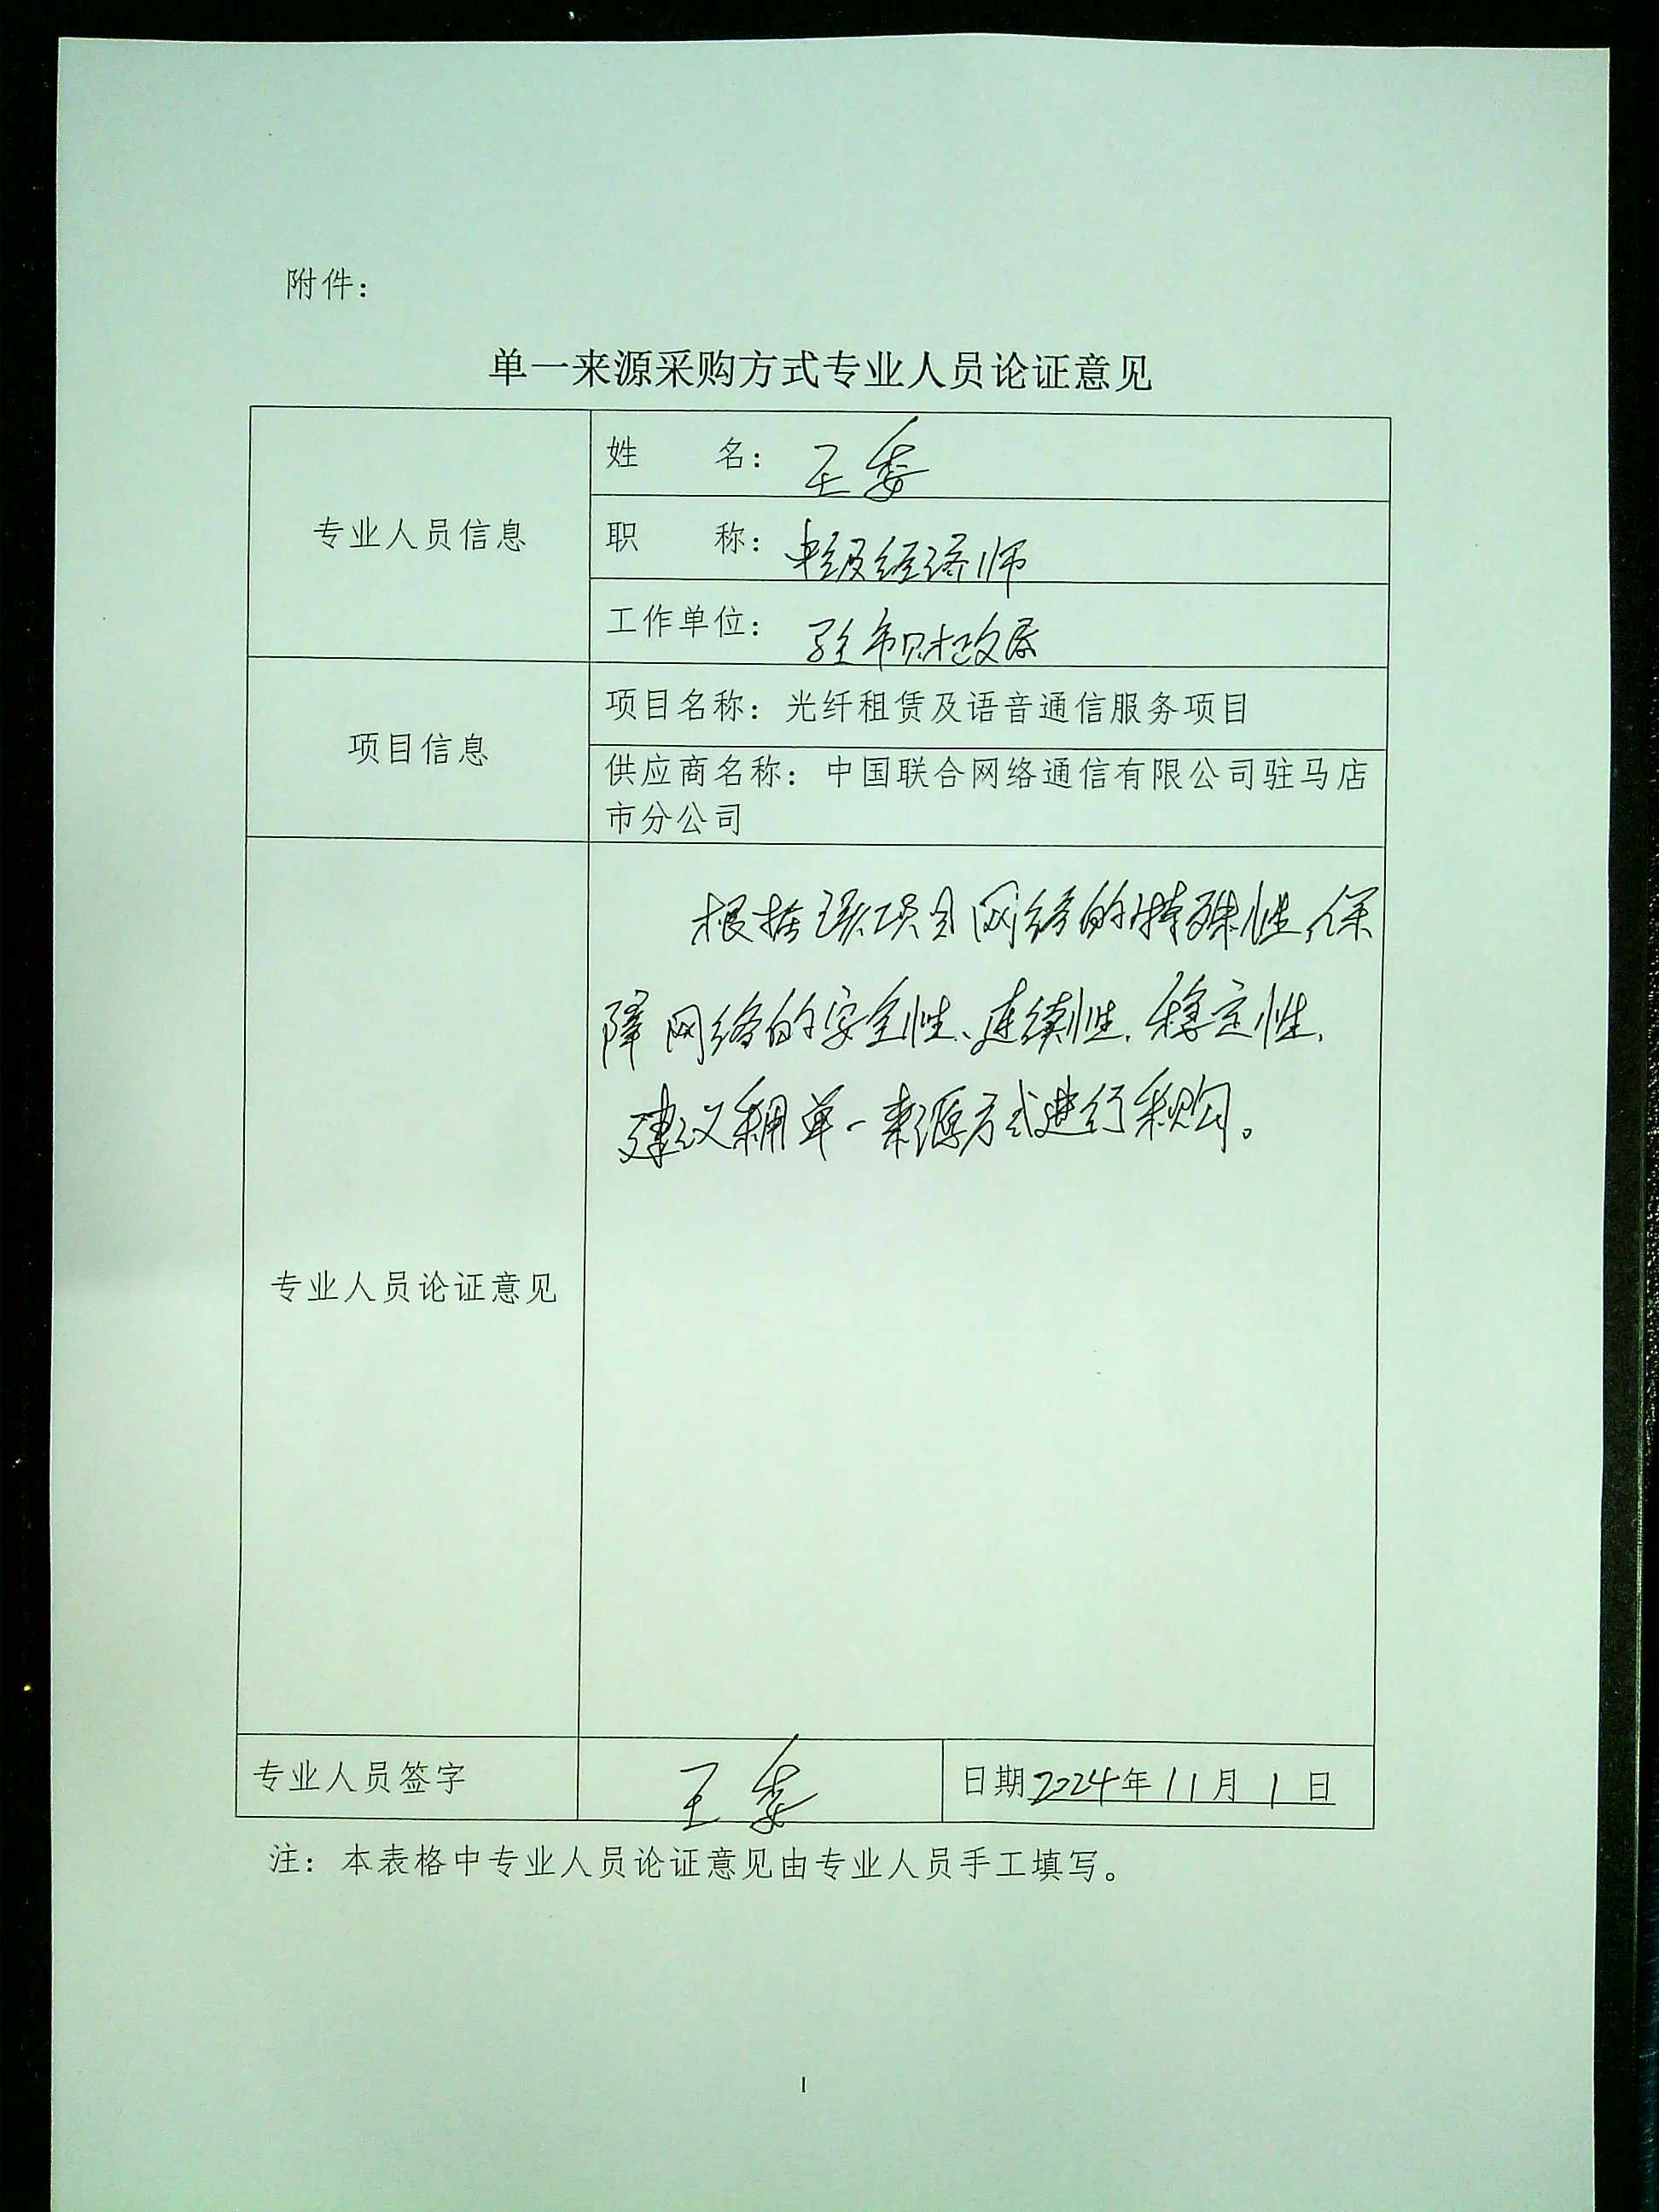 附件：
单一来源采购方式专业人员论证意见
专业人员信息
姓　　名：王委
职　　称：中级经济师
工作单位：驻市财政局
项目信息
项目名称：光纤租赁及语音通信服务项目
供应商名称：中国联合网络通信有限公司驻马店
市分公司
专业人员论证意见
根据该项目网络的特殊性，保
障网络的安全性、连续性、稳定性，
建议采用单一来源方式进行采购。
专业人员签字
王委
日期2024年11月1日
注：本表格中专业人员论证意见由专业人员手工填写。
1